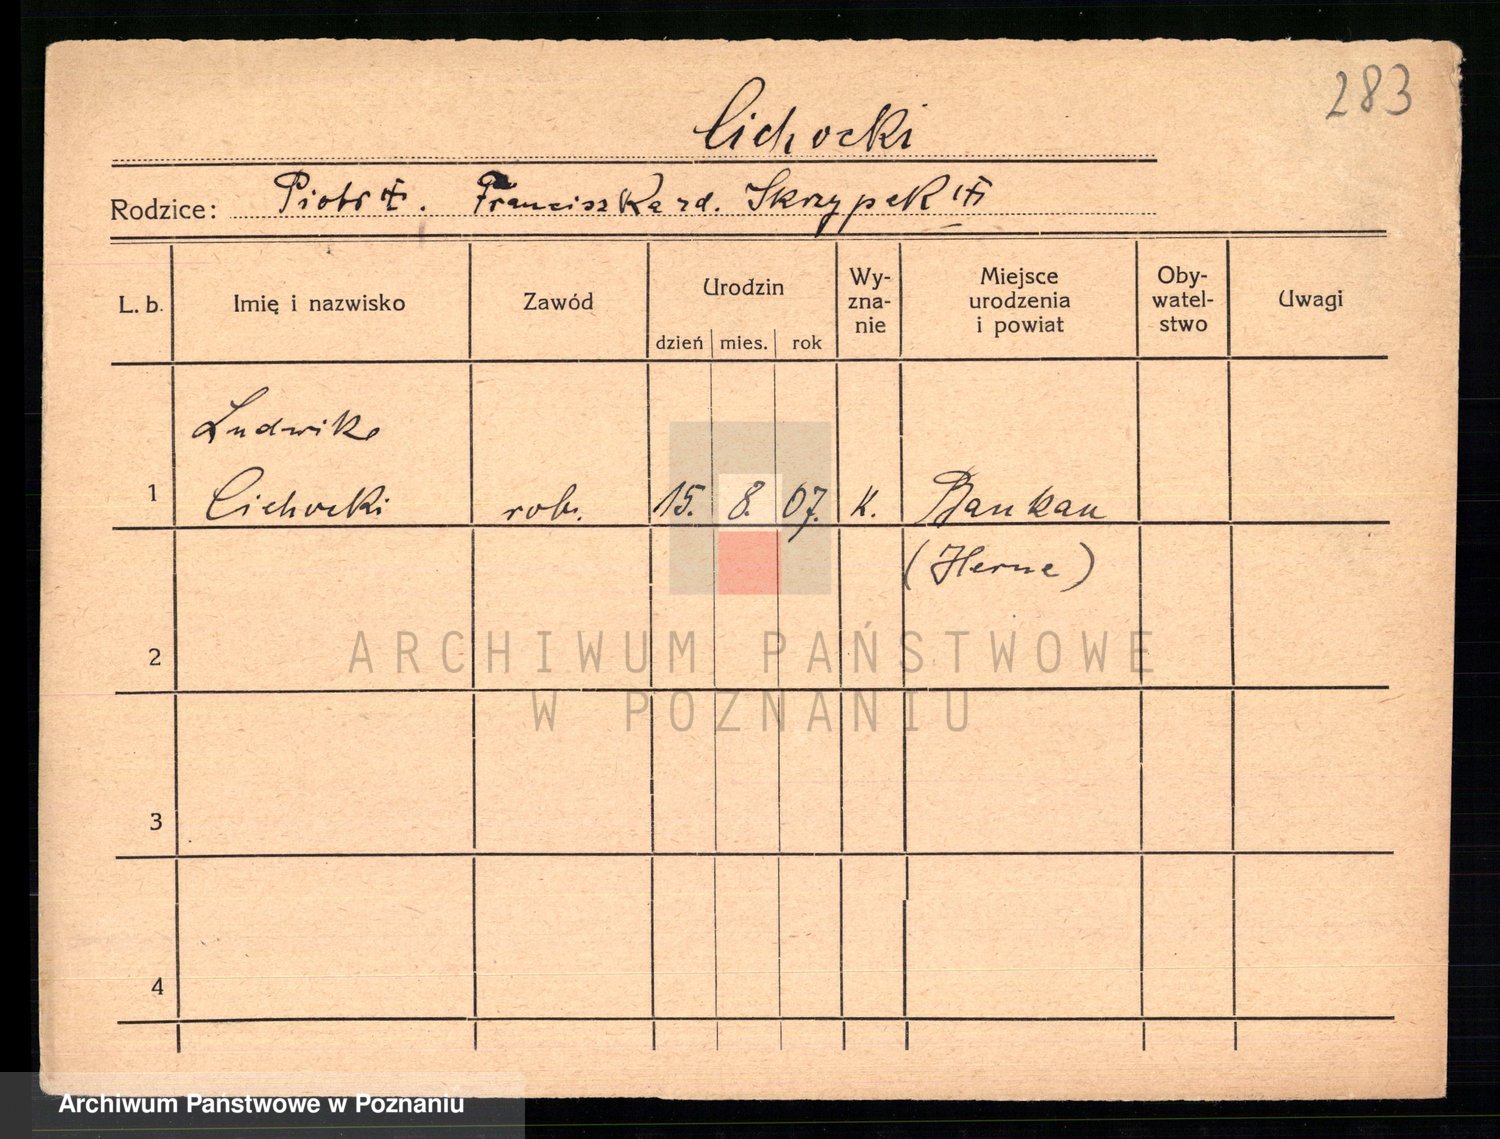 283
Cichocki
Rodzice: Piotr ‡. Franciszka zd. Skrzypek ‡
L. b. Imię i nazwisko Zawód Urodzin dzień mies. rok Wy-zna-nie Miejsce urodzenia i powiat Oby-watel-stwo Uwagi
Ludwik
1 Cichocki rob. 15. 8. 07. K. Baukau
(Herne)
2
3
4
ARCHIWUM PAŃSTWOWE
W POZNANIU
Archiwum Państwowe w Poznaniu